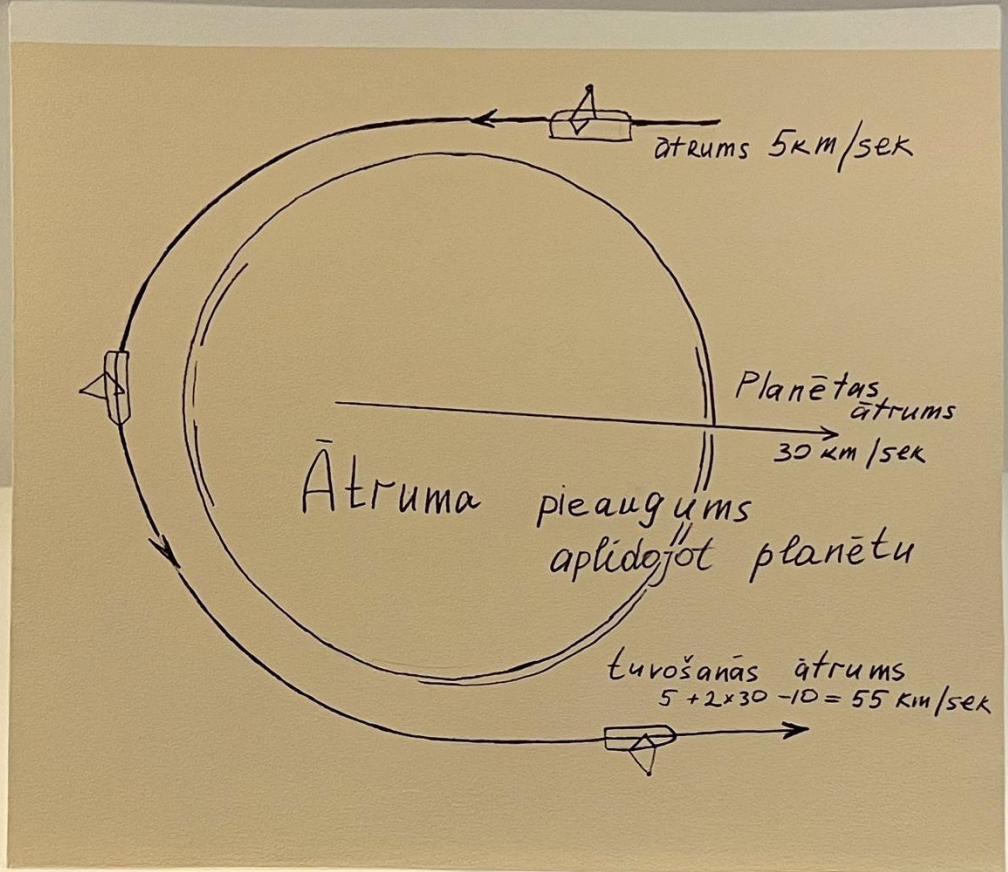 ātrums 5km/sek
Planētas
ātrums
30 km/sek
Ātruma pieaugums
aplidojot planētu
tuvošanās ātrums
5 + 2×30 -10 = 55 km/sek